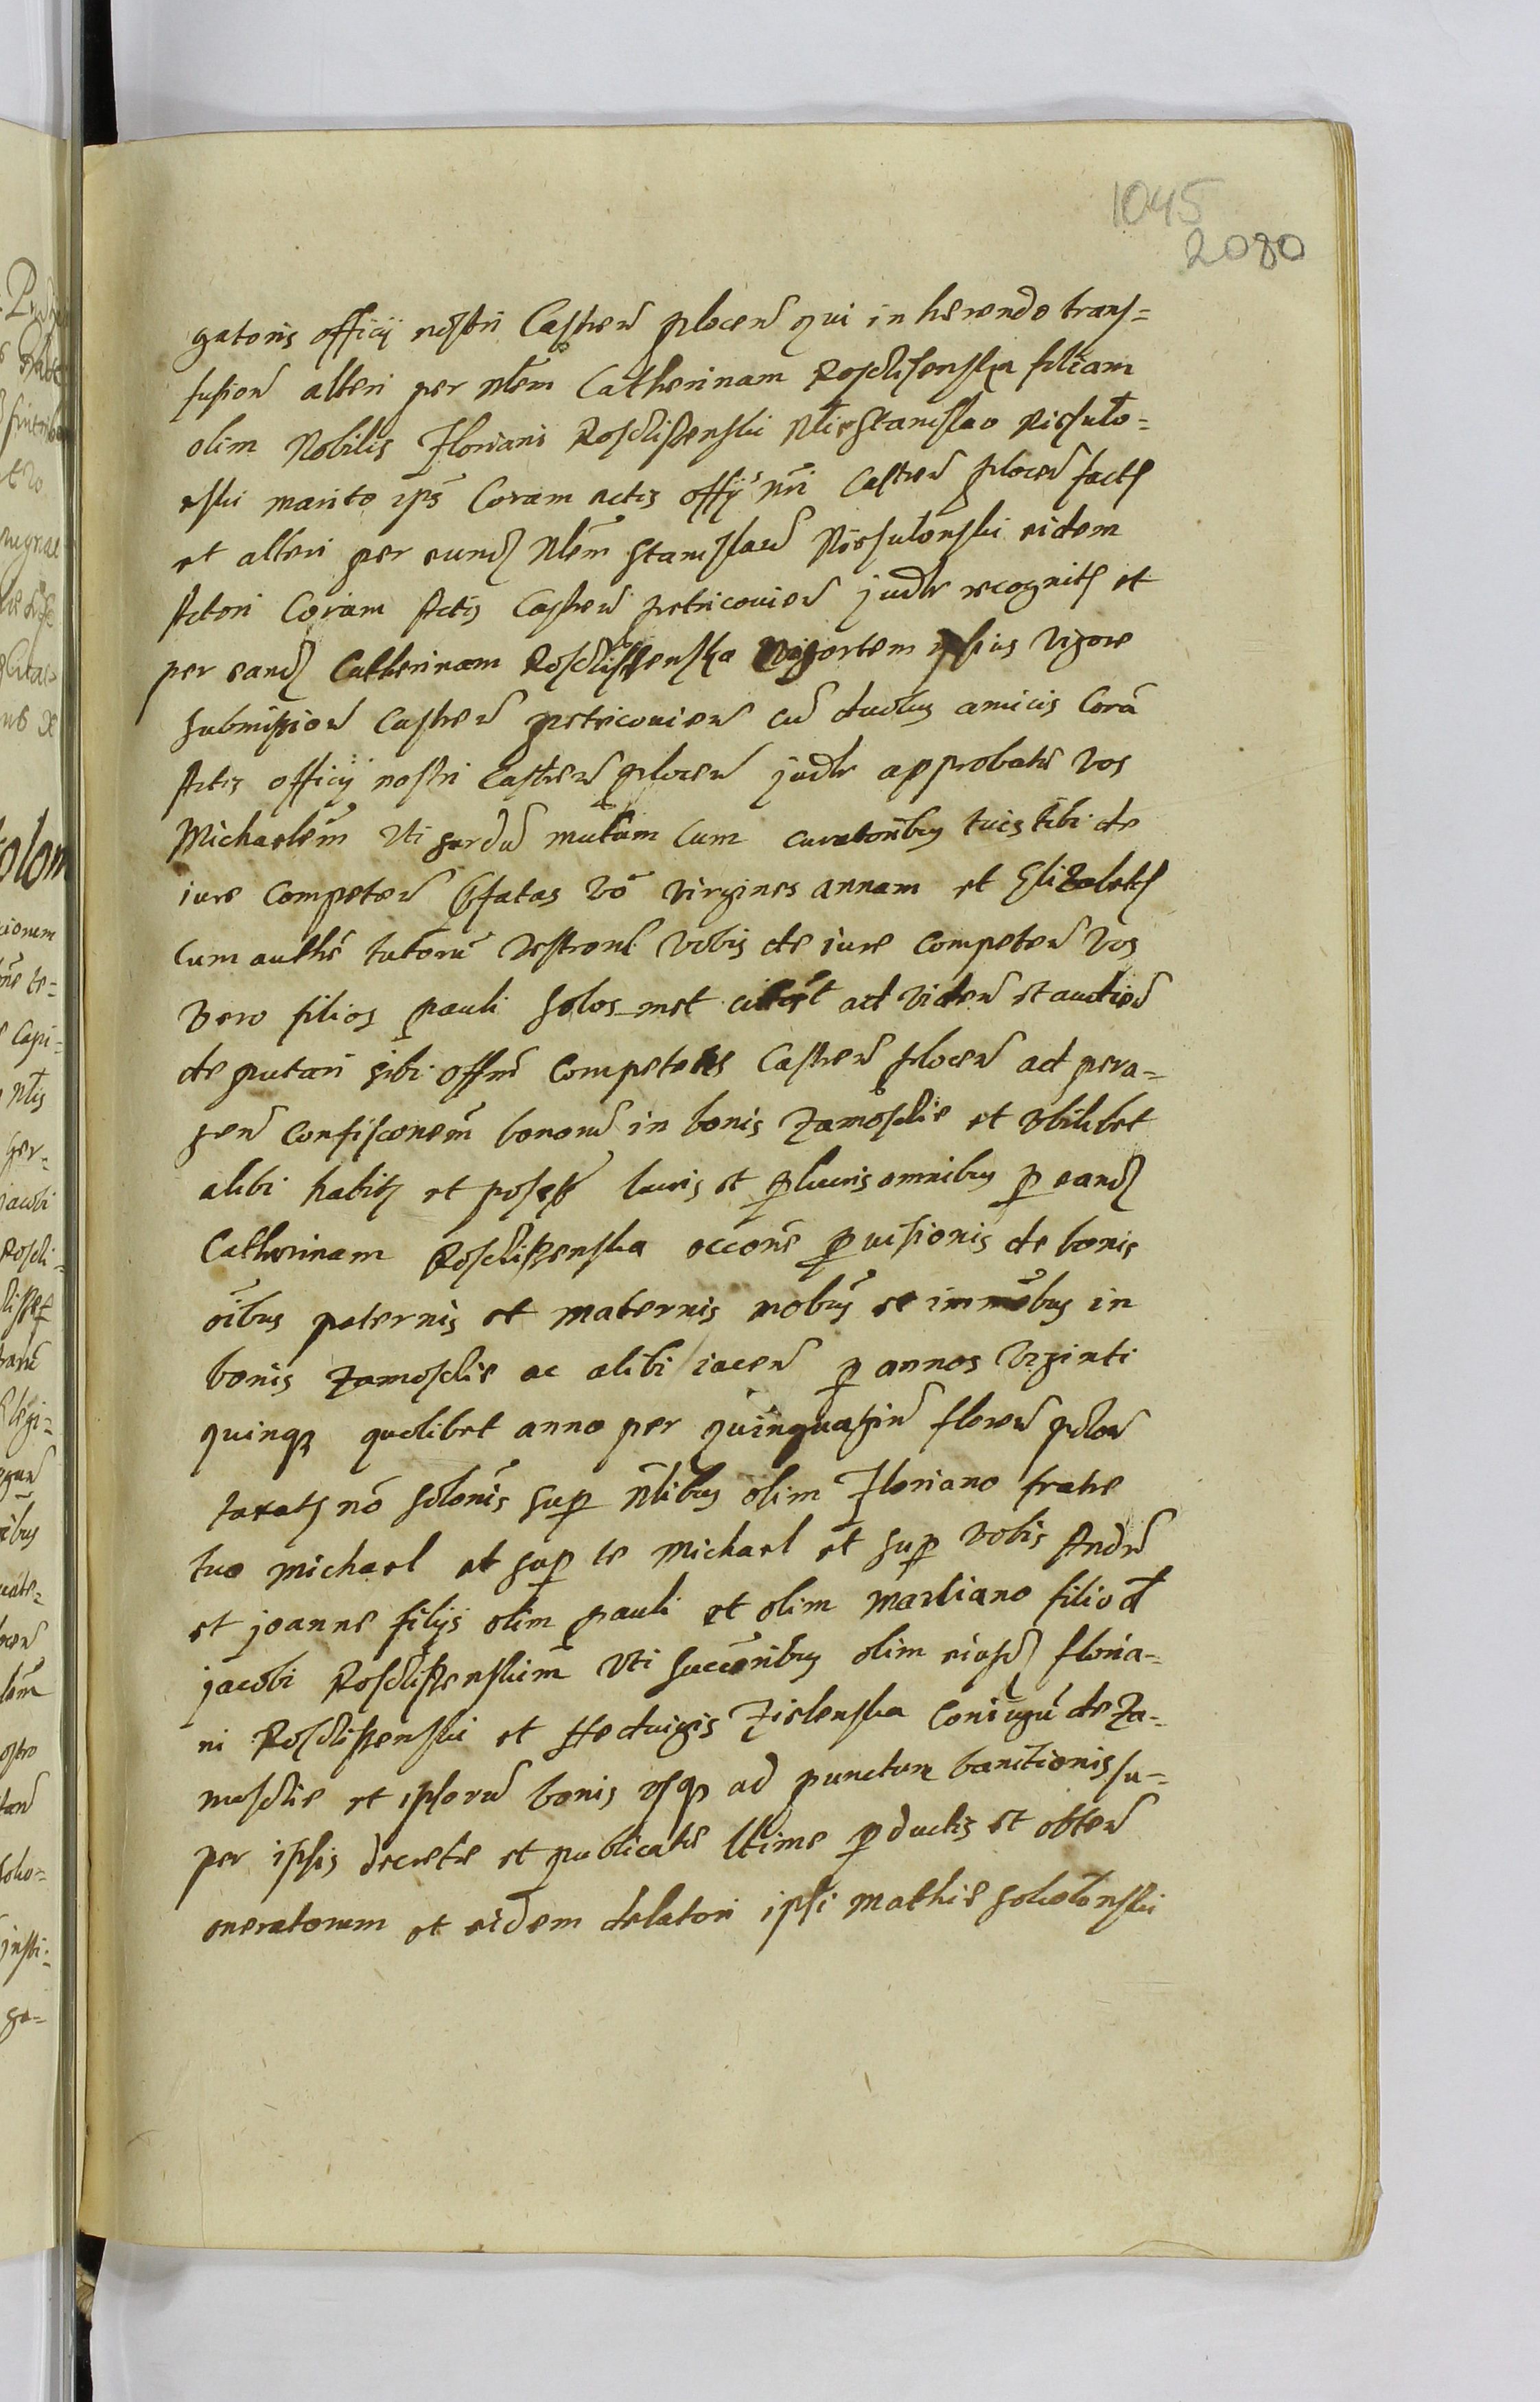 1045
2080
gatoris officij nostri Castren̄ plocen̄ qui inherendo trans=
fusion̄ alteri per nlēm Catherinam Rosclisenska filiam
olim Nobilis Floriani Rosclissenski Nli Stanislao
eski marito ips̄ Coram actis offij nr̄i Castren̄ plocen̄ fact
et alteri per eund nlēm Stanislaū eidem
Actori Coram Actis Castren̄ petricouien̄ judlr recognit et
per eand Catherinam Rosclissenska ipsius vigore
submission̄ Castren̄ petricouien̄ cū duobus amicis Corā
Actis officij nostri Castren̄ plocen̄ judlr approbatē vos
Michaelēm vti surdū mutum cum curatoribus tuis tibi de
iure competen̄ vō virgines annam et Elizabeth
cum authē tutorū vestrorū vobis de iure competen̄ vos
vero filios pauli solos met citat ad viden̄ et audien̄
deputari sibi offm̄ competens Castren̄ plocen̄ ad pera=
gen̄ confisconem̄ bonorū in bonis Zamosclie et vbilibet
alibi habit et possess lucris et plucris omnibus p eand
Catherinam Rosclissenska occonē puisionis de bonis
oībus paternis et maternis mobūs se immōbus in
bonis Zamosclie ac alibi iacen̄ p annos viginti
quinq quolibet anno per quinquagin̄ floren̄ polon̄
taxat nō solonīs sup nlibus olim Floriano fratre
tuo Michael et sup te Michael et sup vobis Andrē
et joanne filijs olim pauli et olim Marliano filio
jacobi Rosclissenskim vti succōribus olim eiusd floria=
ni Rosclissenski et Heduigis Zielenska coniugū de Za=
mosclie et ipsorū bonis vsq ad punctum banitionis su=
per ipsis decretē et publicatē ltime pductis et obten̄
oneratorum et eidem delatori ipsi Mathie Sokolonski